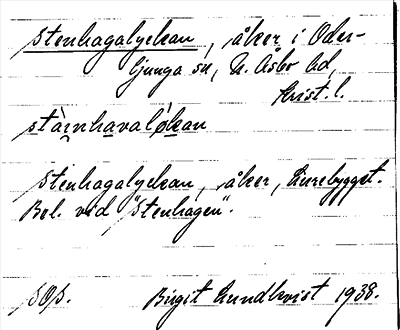 Stenhagalyckan, åker i Oder-
ljunga sn, N. Åsbo hd,
Krist. l.
stàinhavalýkan
Stenhagalyckan, åker, Lurebygget.
Bel. vid "Stenhagen".
SOS. Birgit Lundkvist 1938.